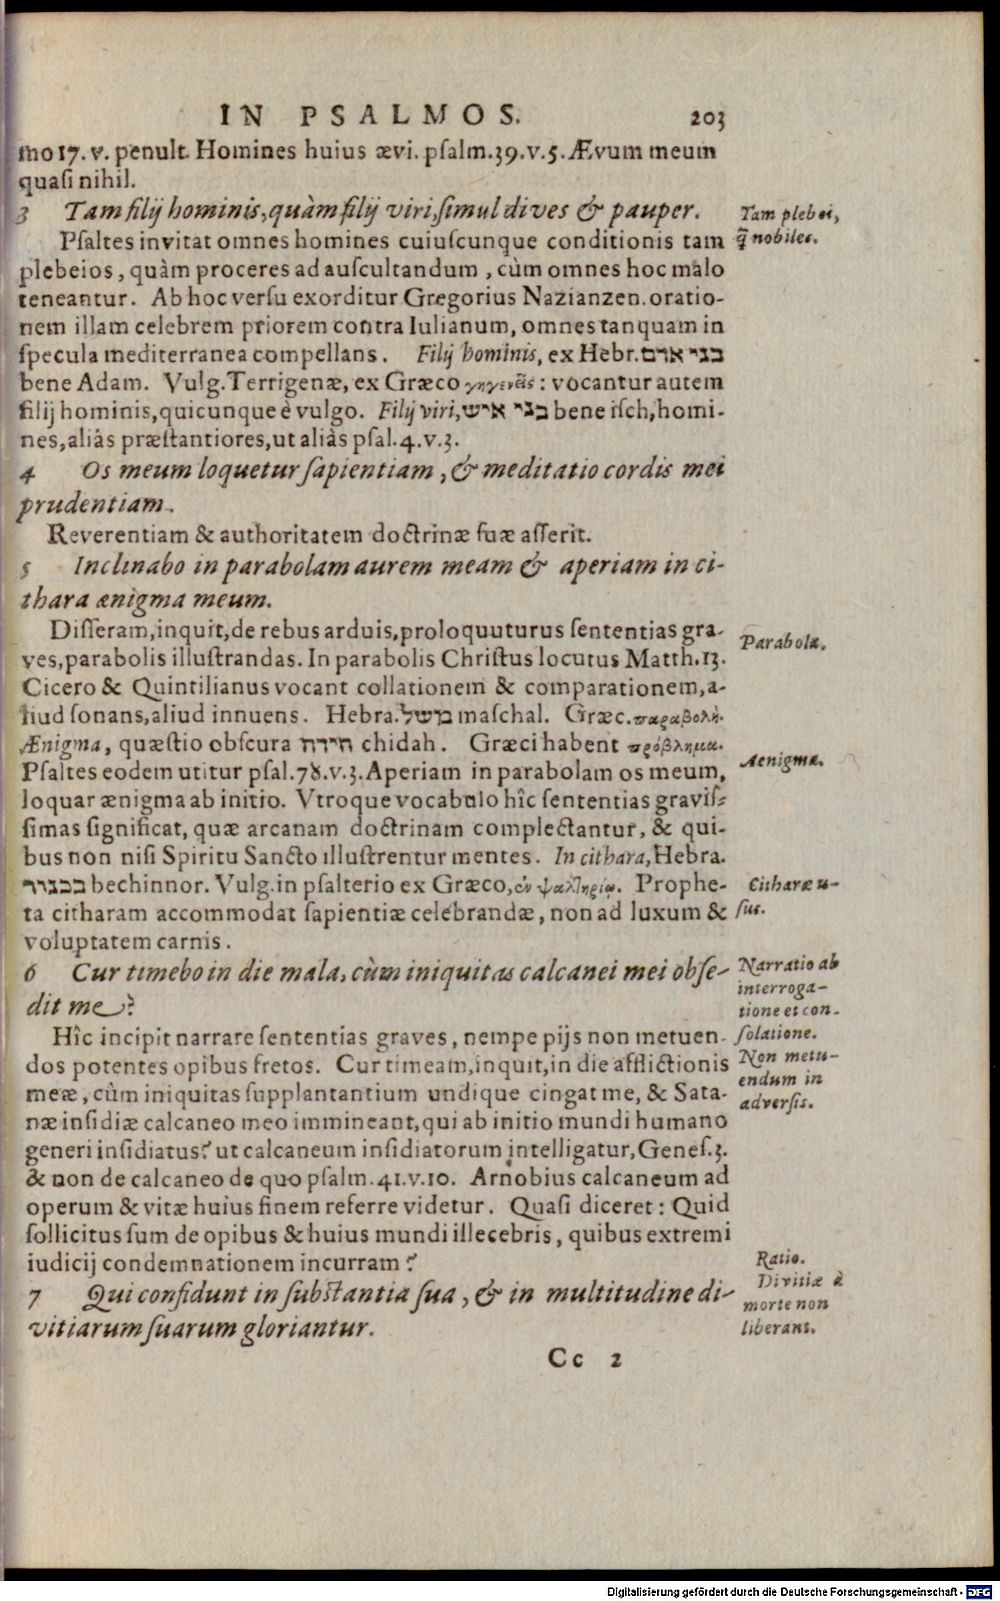 IN PSALMOS. 203
mo 17. v. penult. Homines huius ævi. psalm. 39. v. 5. Ævum meum
quasi nihil.
3 Tam filij hominis, quàm filij viri, simul dives & pauper.
Tam plebei,
q̃ nobiles.
Psaltes invitat omnes homines cuiuscunque conditionis tam
plebeios, quàm proceres ad auscultandum, cùm omnes hoc malo
teneantur. Ab hoc versu exorditur Gregorius Nazianzen. oratio-
nem illam celebrem priorem contra Iulianum, omnes tanquam in
specula mediterranea compellans. Filij hominis, ex Hebr. בני אדם
bene Adam. Vulg. Terrigenæ, ex Græco γηγενεῖς: vocantur autem
filij hominis, quicunque è vulgo. Filij viri, בני איש bene isch, homi-
nes, aliàs præstantiores, ut aliàs psal. 4. v. 3.
4 Os meum loquetur sapientiam, & meditatio cordis mei
prudentiam.
Reverentiam & authoritatem doctrinæ suæ asserit.
5 Inclinabo in parabolam aurem meam & aperiam in ci-
thara ænigma meum.
Disseram, inquit, de rebus arduis, proloquuturus sententias gra-
ves, parabolis illustrandas. In parabolis Christus locutus Matth. 13.
Parabola.
Cicero & Quintilianus vocant collationem & comparationem, a-
liud sonans, aliud innuens. Hebra. משל maschal. Græc. παραβολὴ.
Ænigma, quæstio obscura חידה chidah. Græci habent πρόβλημα.
Aenigma.
Psaltes eodem utitur psal. 78. v. 3. Aperiam in parabolam os meum,
loquar ænigma ab initio. Vtroque vocabulo hîc sententias gravis-
simas significat, quæ arcanam doctrinam complectantur, & qui-
bus non nisi Spiritu Sancto illustrentur mentes. In cithara, Hebra.
בכנור bechinnor. Vulg. in psalterio ex Græco, ἐν ψαλτηρίῳ. Prophe-
Citharæ u-
sus.
ta citharam accommodat sapientiæ celebrandæ, non ad luxum &
voluptatem carnis.
6 Cur timebo in die mala, cùm iniquitas calcanei mei obse-
dit me?
Narratio ab
interroga-
tione et con-
solatione.
Hîc incipit narrare sententias graves, nempe pijs non metuen-
dos potentes opibus fretos. Cur timeam, inquit, in die afflictionis
Non metu-
endum in
adversis.
meæ, cùm iniquitas supplantantium undique cingat me, & Sata-
næ insidiæ calcaneo meo immineant, qui ab initio mundi humano
generi insidiatus? ut calcaneum insidiatorum intelligatur, Genes. 3.
& non de calcaneo de quo psalm. 41. v. 10. Arnobius calcaneum ad
operum & vitæ huius finem referre videtur. Quasi diceret: Quid
sollicitus sum de opibus & huius mundi illecebris, quibus extremi
iudicij condemnationem incurram?
Ratio.
Divitiæ à
morte non
liberant.
7 Qui confidunt in substantia sua, & in multitudine di-
vitiarum suarum gloriantur.
Cc 2
Digitalisierung gefördert durch die Deutsche Forschungsgemeinschaft - DFG